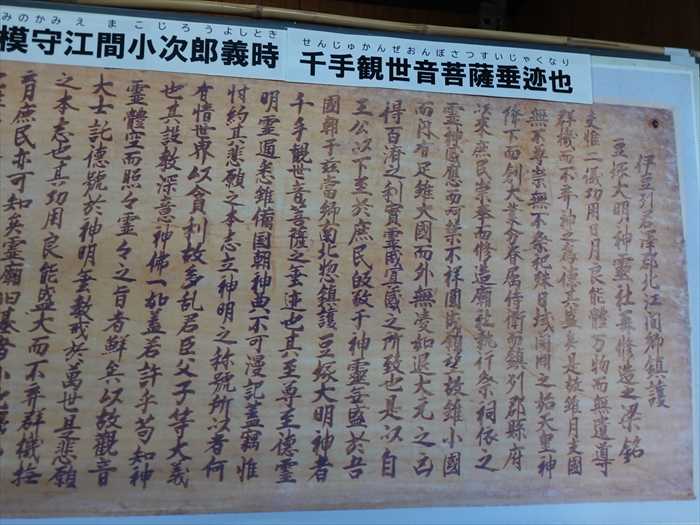 みのかみえまこじろうよしとき
模守江間小次郎義時
せんじゅかんぜおんぼさつすいじゃくなり
千手観世音菩薩垂迹也
伊豆列君澤郡北江間鄉鎮護
豆塚大明神靈社再修造之梁銘
夫惟二儀功用日月良能體万物而無遺導
群機而不弃神之爲德其盛矣是故雖月支國
無不尊崇無不祭祀殊日域開闢之始天皇神
降下而創大業分眷属侍衛而鎮列郡縣府
以来庶民崇奉而修造廟社執行祭祠依之
靈神感應而可禁不祥圓滿願望故雖小國
而内有足雖大國而外無憂如退大元之凶
得百濟之利實靈威冥感之所致也是以自
王公以下至於庶民皈敬于神靈莫盛於吾
國朝于茲當鄉南北惣鎮護豆塚大明神者
千手觀世音菩薩之垂迹也其至尊至德靈
明靈通悉雖備国朝神典不可漫記蓋竊惟
忖約其悲願之本志立神明之称號所以者何
有情世界以貪利故多乱君臣父子等大義
也其設教深意神佛一如蓋若許乎苟知神
靈體空而照々靈々之旨者鮮矣以故觀音
大士託德號於神明垂教戒於萬世其悲願
之本志也其功用良能盛大而不弃群機
育庶民亦可知矣靈廟旧基者小